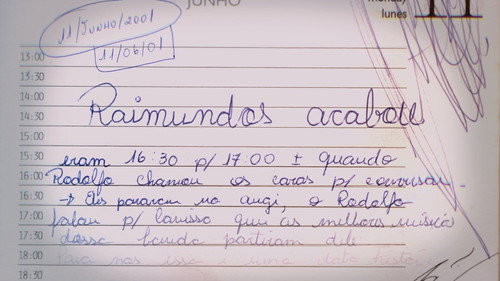 JUNHO
monday
lunes
11
11/JUNHO/2001
11/06/01
13:00
13:30
14:00
14:30
Raimundos acabou
15:00
15:30
eram 16:30 p/ 17:00 ± quando
16:00
Rodolfo chamou os caras p/ conversar
16:30
→ Eles pararam no augi, o Rodolfo
17:00
falou p/ larissa que as melhores música
17:30
dessa banda partiram dele
18:00
Para nos isso é uma data história
18:30